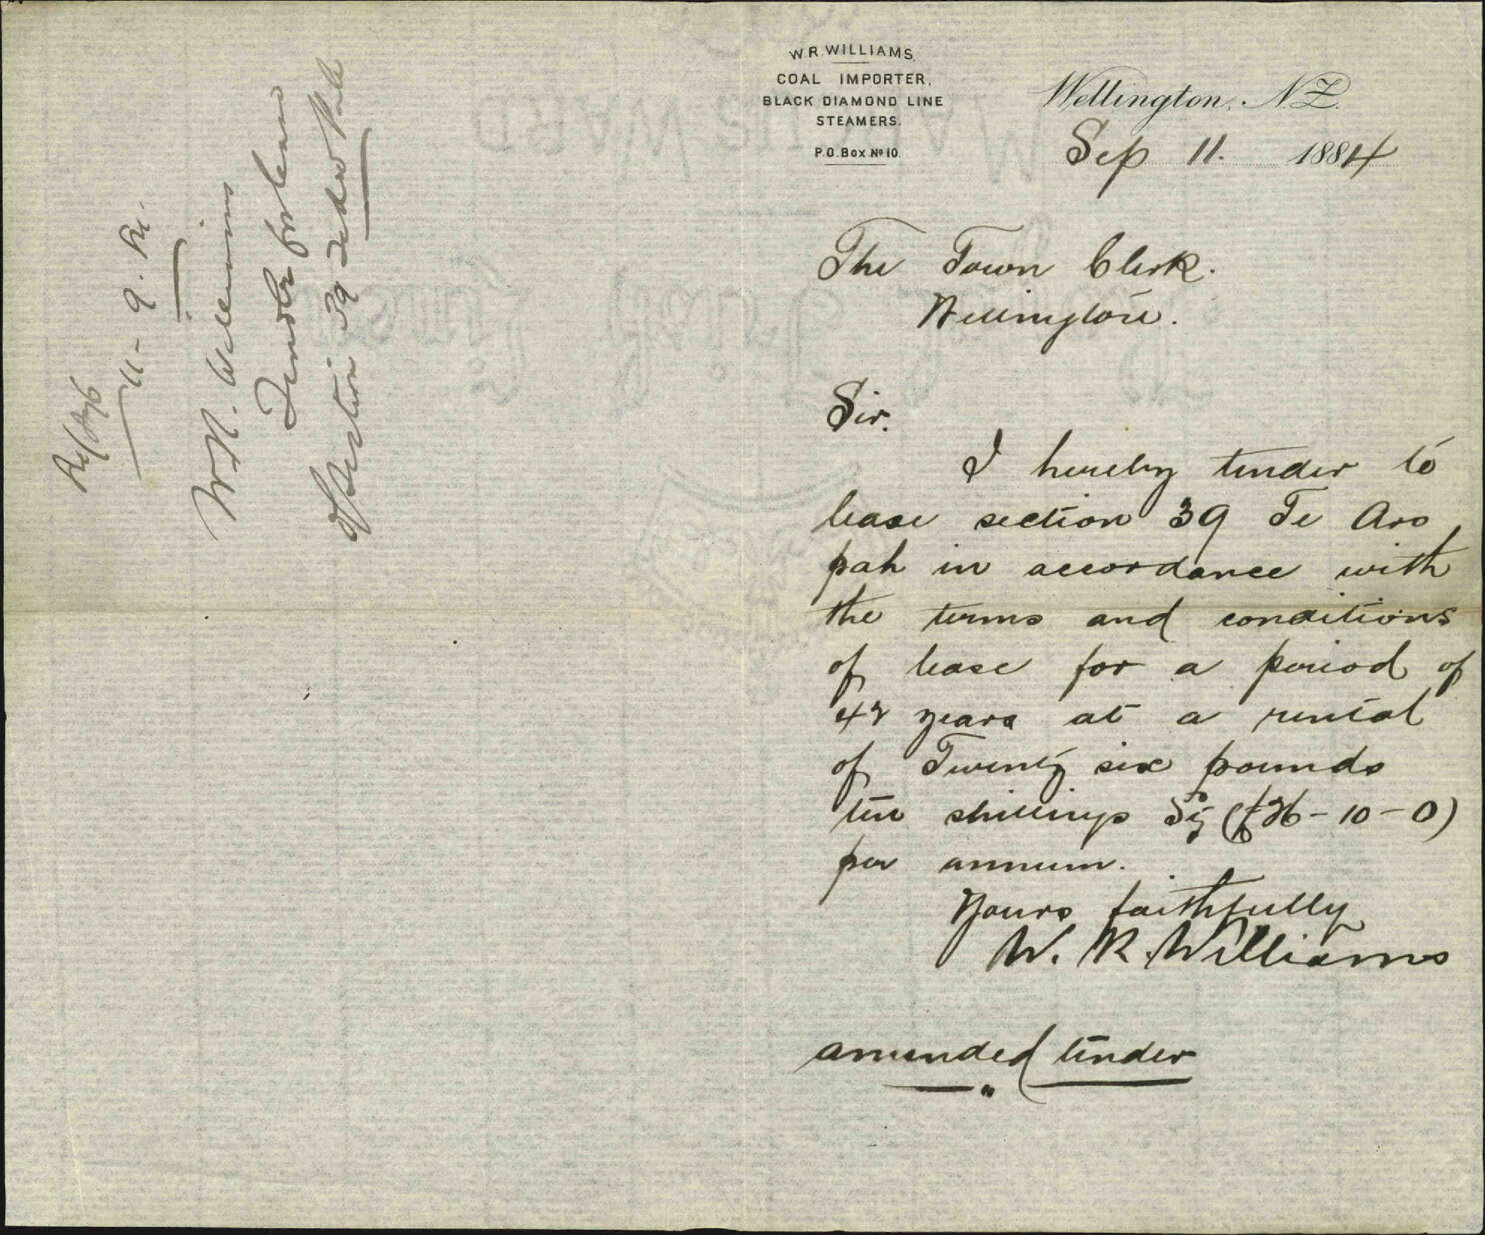 W.R. WILLIAMS,
COAL IMPORTER,
BLACK DIAMOND LINE
STEAMERS.
P.O. Box No 10.
Wellington, N.Z.
Sep 11. 1884
The Town Clerk.
Wellington.
Sir.
I hereby tender to
lease section 39 Te Aro
pah in accordance with
the terms and conditions
of lease for a period of
42 years at a rental
of Twenty six pounds
ten shillings Stg (£26-10-0)
per annum.
Yours faithfully
W. R. Williams
amended tender
11-9-84
W.R. Williams
Tender for lease
of section 39 Te Aro Pah